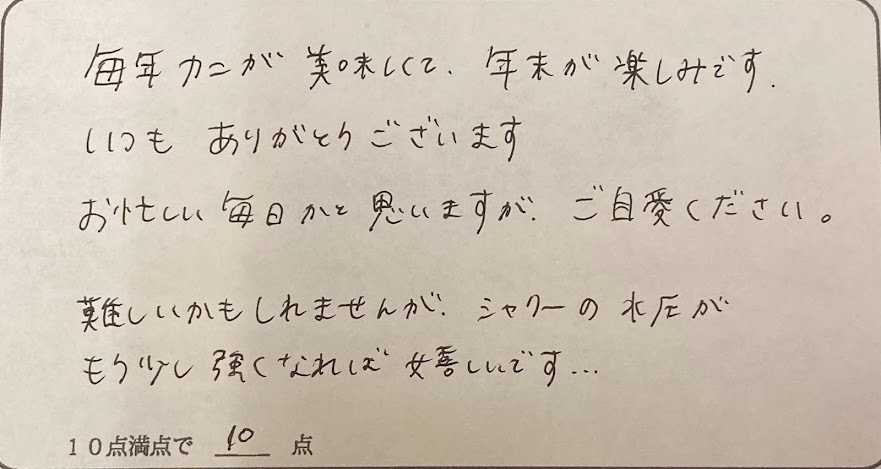 毎年カニが美味しくて、年末が楽しみです.
いつも ありがとうございます
お忙しい毎日かと思いますが、ご自愛ください。
難しいかもしれませんが、シャワーの水圧が
もう少し強くなれば嬉しいです…
10点満点で 10 点